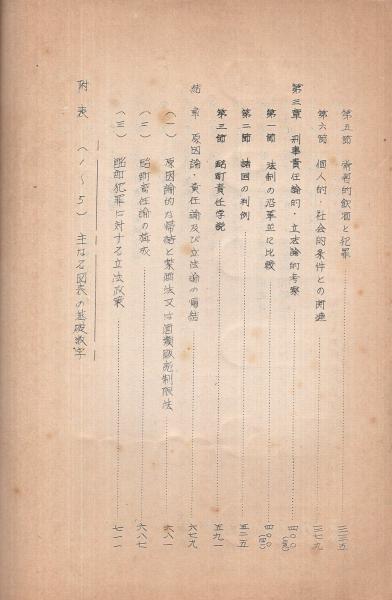 第五節 術割的飲酒と犯罪 三三五
第六節 個人的・社会的条件との関連 三七九
第三章 刑事責任論的・立法論的考察 四〇〇
第一節 法制の沿革並に比較 四〇〇
第二節 諸国の判例 五二五
第三節 酩酊責任学説 五九一
結章 原因論・責任論及び立法論の 六七九
(一) 原因論的な帰結と禁酒法又は酒類販売制限法 六八一
(二) 酩酊責任論の 六八七
(三) 酩酊犯罪に対する立法政策 七一一
附表 (1〜5) 主なる図表の基礎数字